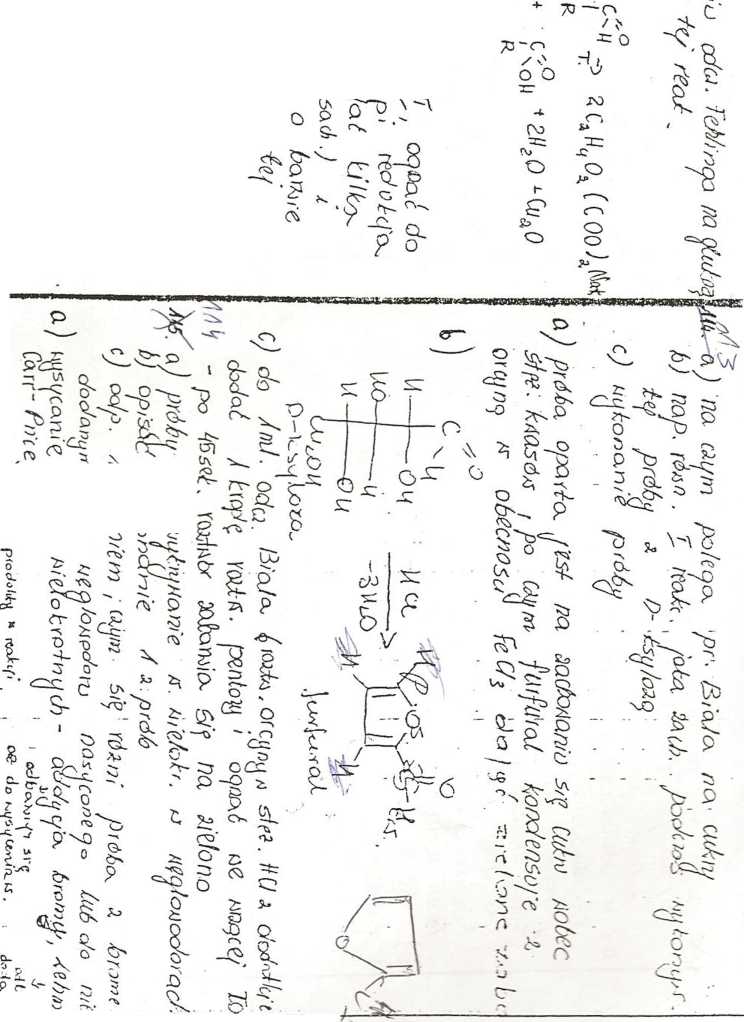 odcz. Fehlinga na glukozę
tej reak.
C=O
H
R
T
⇒ 2C2H4O2(COO)2NaK
+ C=O
OH
R
+ 2H2O + Cu2O
T, ogrzać do
redukcja
kilka
sach.) i
o barwie
tej
113
a) na czym polega pr. Biala na cukry
b) nap. równ. I reakc. jaka zach. podczas wykonyw.
tej próby z D-ksylozą
c) wykonanie próby
a) próba oparta jest na zachowaniu się cukru wobec
stęż. kwasów, po czym furfural kondensuje z
orcyną w obecności FeCl3 dając zielone
b)
C=O
H
H OH
HO H
H OH
CH2OH
D-ksyloza
HCl
-3H2O
H
H
H
O
O
C-H
furfural
O
c) do 1ml. odcz. Biala (roztw. orcyny w stęż. HCl z dodatkiem
dodać 1 kroplę roztw. pentozy i ogrzać we wrzącej
- po 45 sek. roztwór zabarwia się na zielono
114
a) próby wykrywanie w. wielokr. w węglowodorach
b) opisać 1 z prób
c) odp. czym się różni próba z brome
dodanym węglowodoru nasyconego lub do nie
a) wysycanie wielokrotnych - addycja bromu,
Carr-Price
odbarwiają się
produkty reakcji
do wysycenia w.